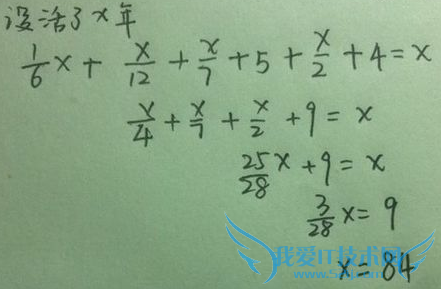 设活了x年
1/6 x + x/12 + x/7 + 5 + x/2 + 4 = x
x/4 + x/7 + x/2 + 9 = x
25/28 x + 9 = x
3/28 x = 9
x = 84
我爱IT技术网